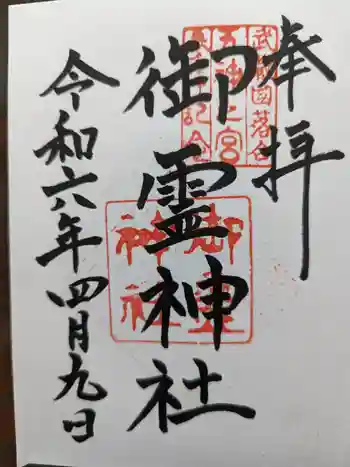 奉拝
御霊神社
令和六年四月九日
武蔵国落合
五神之宮
御霊
神社